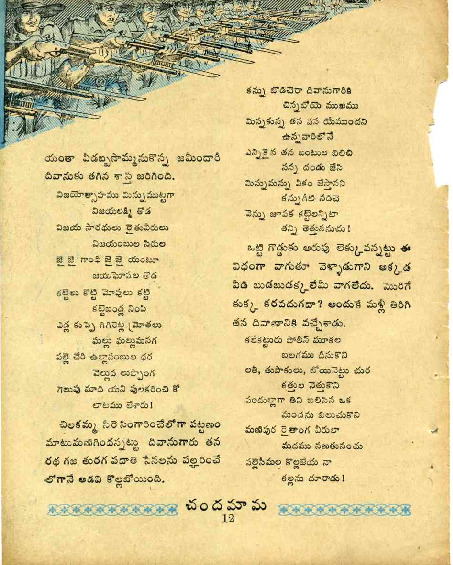 యంతా వీడబ్బసొమ్మనుకొన్న జమీందారీ
దివానుకు తగిన శాస్తి జరిగింది.
విజయోత్సాహము మిన్నుముట్టగా
విజయలక్ష్మి తోడ
విజయ సారథులు రైతువీరులు
విజయంబుల సిరుల
జై జై గాంధీ జై జై యంటూ
జయఘోషల తోడ
కట్టెలు కొట్టి మోపులు కట్టి
కట్టెబండ్ల నింపి
ఎడ్ల కుప్పె గిగిసెట్ల మ్రోతలు
ఘల్లు ఘల్లుమనగ
పల్లె చేరి ఉల్లాసంబుల ధర
వెల్లువ లుప్పొంగ
గెలుపు మాది యని పులకరించి కో
లాటము లేశారు!
చిలకమ్మ సిరె సింగారించేలోగా పట్టణం
మాటుమణిగిందన్నట్టు దివానుగారు తన
రథ గజ తురగ పదాతి సేనలను పల్లరించే
లోగానే అడవి కొల్లబోయింది.
కన్ను బొడిచెరా దివానుగారికి
చిన్నబోయె ముఖము
మిన్నకున్న తన పస యేముందని
ఉన్నవారిలోనే
ఎన్నికైన తన బంటుల బిలిచి
సన్న దండు జేసి
మిన్నుమన్ను వికం జేస్తానని
కన్నుగీటి నడిచె
వెన్ను జూపక కట్టెలన్నిటా
తన్ని తెత్తుననుచు!
ఒట్టి గొడ్డుకు అరుపు లెక్కువన్నట్టు ఈ
విధంగా వాగుతూ వెళ్ళాడుగాని అక్కడ
వీడి బుడబుడక్కలేమీ వాగలేదు. మొరిగే
కుక్క కరవదుగదా? అందుకే మళ్లీ తిరిగి
తన దివాణానికి వచ్చేశాడు.
కడకట్టురు పోలీస్ మూకల
బలగము దీసుకొని
లఠీ, తుపాకులు, బోయినెట్లు చుర
కత్తుల నెత్తుకొని
పందుల్లాగా తిని బలిసిన ఒక
మందను బిలుచుకొని
మణిపుర రైతాంగ వీరులా
మదము నణతునంచు
పల్లెసీమల కొల్లజేయ నా
కల్లను దూరాడు!
చందమామ
12